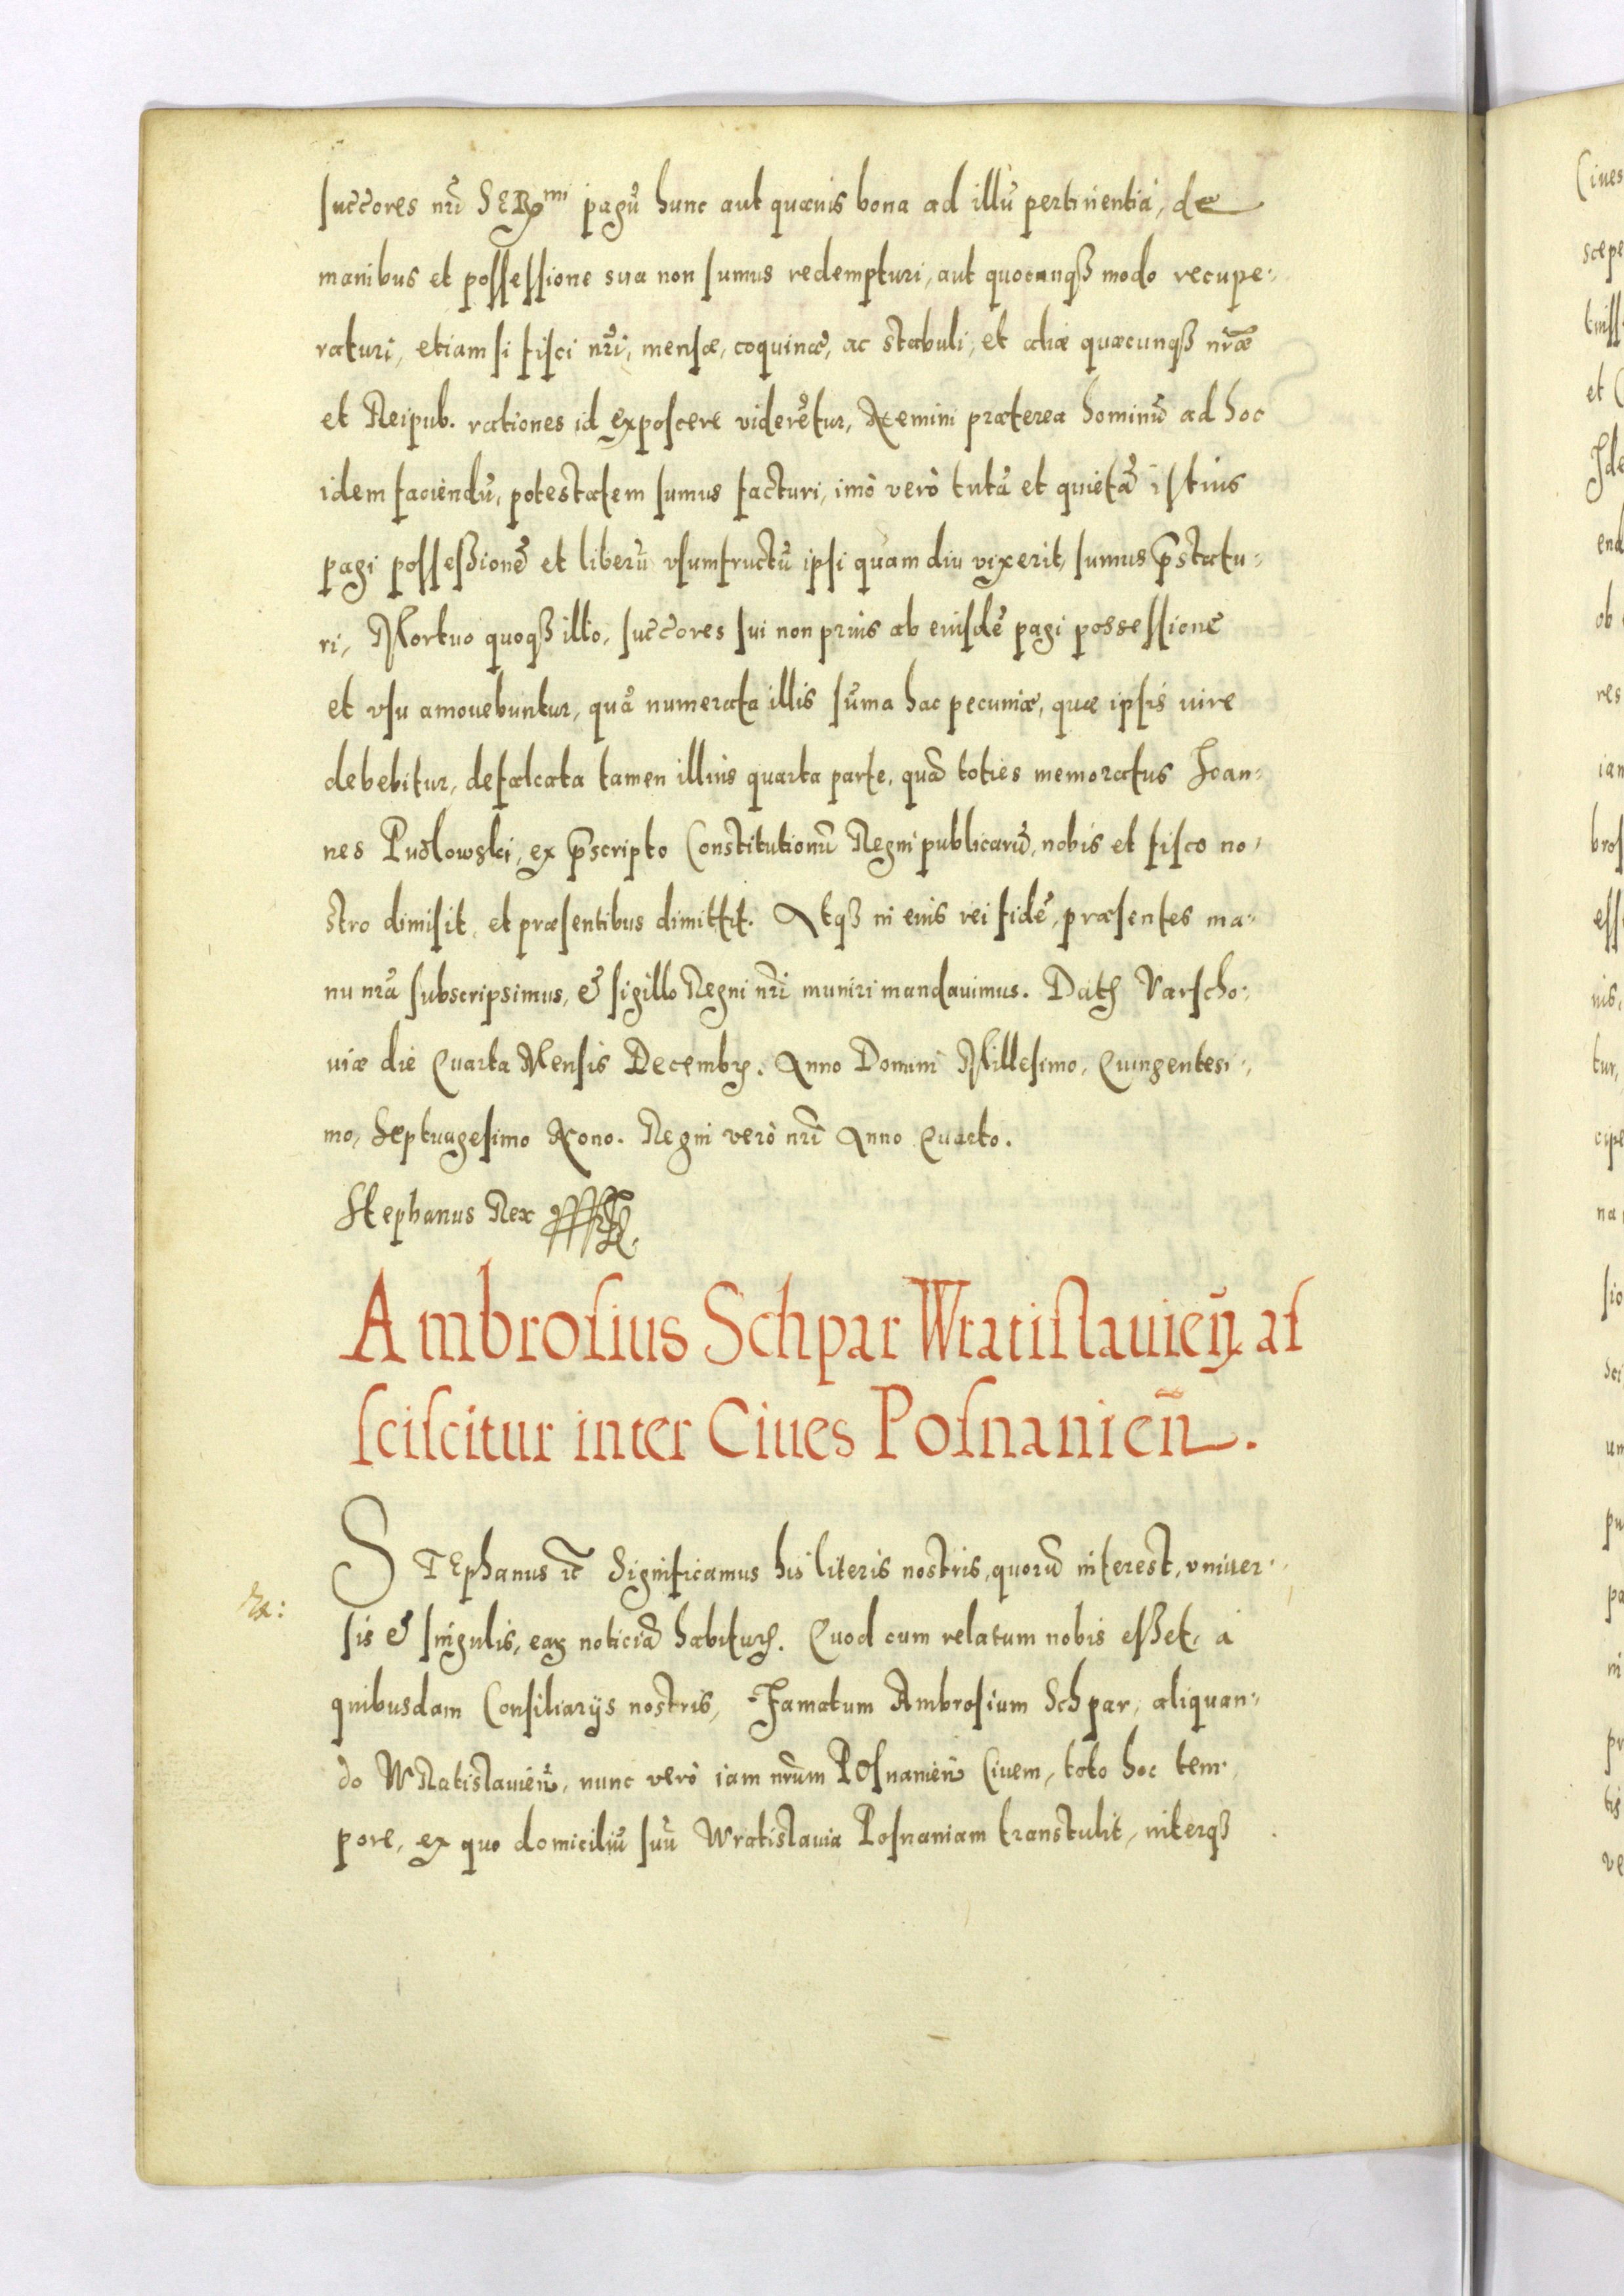 succores nr̃i SERꝫmi pagũ hunc aut quævis bona ad illũ pertinentia, de
manibus et possessione sua non sumus redempturi, aut quocunqꝫ modo recupe-
raturi, etiam si fisci nr̃i, mensæ, coquinæ, ac stabuli, et aliæ quæcunqꝫ nr̃æ
et Reipub. rationes id exposcere viderẽtur, Nemini præterea hominũ ad hoc
idem faciendũ, potestatem sumus facturi, imò verò tutã et quietã istius
pagi possessionẽ et liberũ vsumfructũ ipsi quam diu vixerit, sumus p̃statu-
ri, Mortuo quoqꝫ illo, succores sui non prius ab eiusdẽ pagi possessione
et vsu amouebuntur, quã numerata illis sũma hac pecuniæ, quæ ipsis iure
debebitur, defalcata tamen illius quarta parte, quã toties memoratus Joan-
nes Pudlowski, ex p̃scripto Constitutionũ Regni publicarũ, nobis et fisco no-
stro dimisit, et præsentibus dimittit. Atqꝫ in eius rei fidẽ, præsentes ma-
nu nr̃a subscripsimus, & sigillo Regni nr̃i muniri mandauimus. Datꝫ Varscho-
uiæ die Quarta Mensis Decembꝫ. Anno Domini Millesimo, Quingentesi-
mo, Septuagesimo Nono. Regni verò nr̃i Anno Quarto.
Stephanus Rex
Ambrosius Schpar Wratislauieñ as
sciscitur inter Ciues Posnanieñ.
STEphanus ec̃ Significamus his literis nostris, quorũ interest, vniuer-
Ra:
sis & singulis, eaꝫ noticiã habituꝫ. Quod cum relatum nobis esset, a
quibusdam Consiliarijs nostris, Famatum Ambrosium Schpar, aliquan-
do WRatislauieñ, nunc verò iam nr̃um POsnanieñ Ciuem, toto hoc tem-
pore, ex quo domiciliũ suũ Wratislauia Posnaniam transtulit, interqꝫ